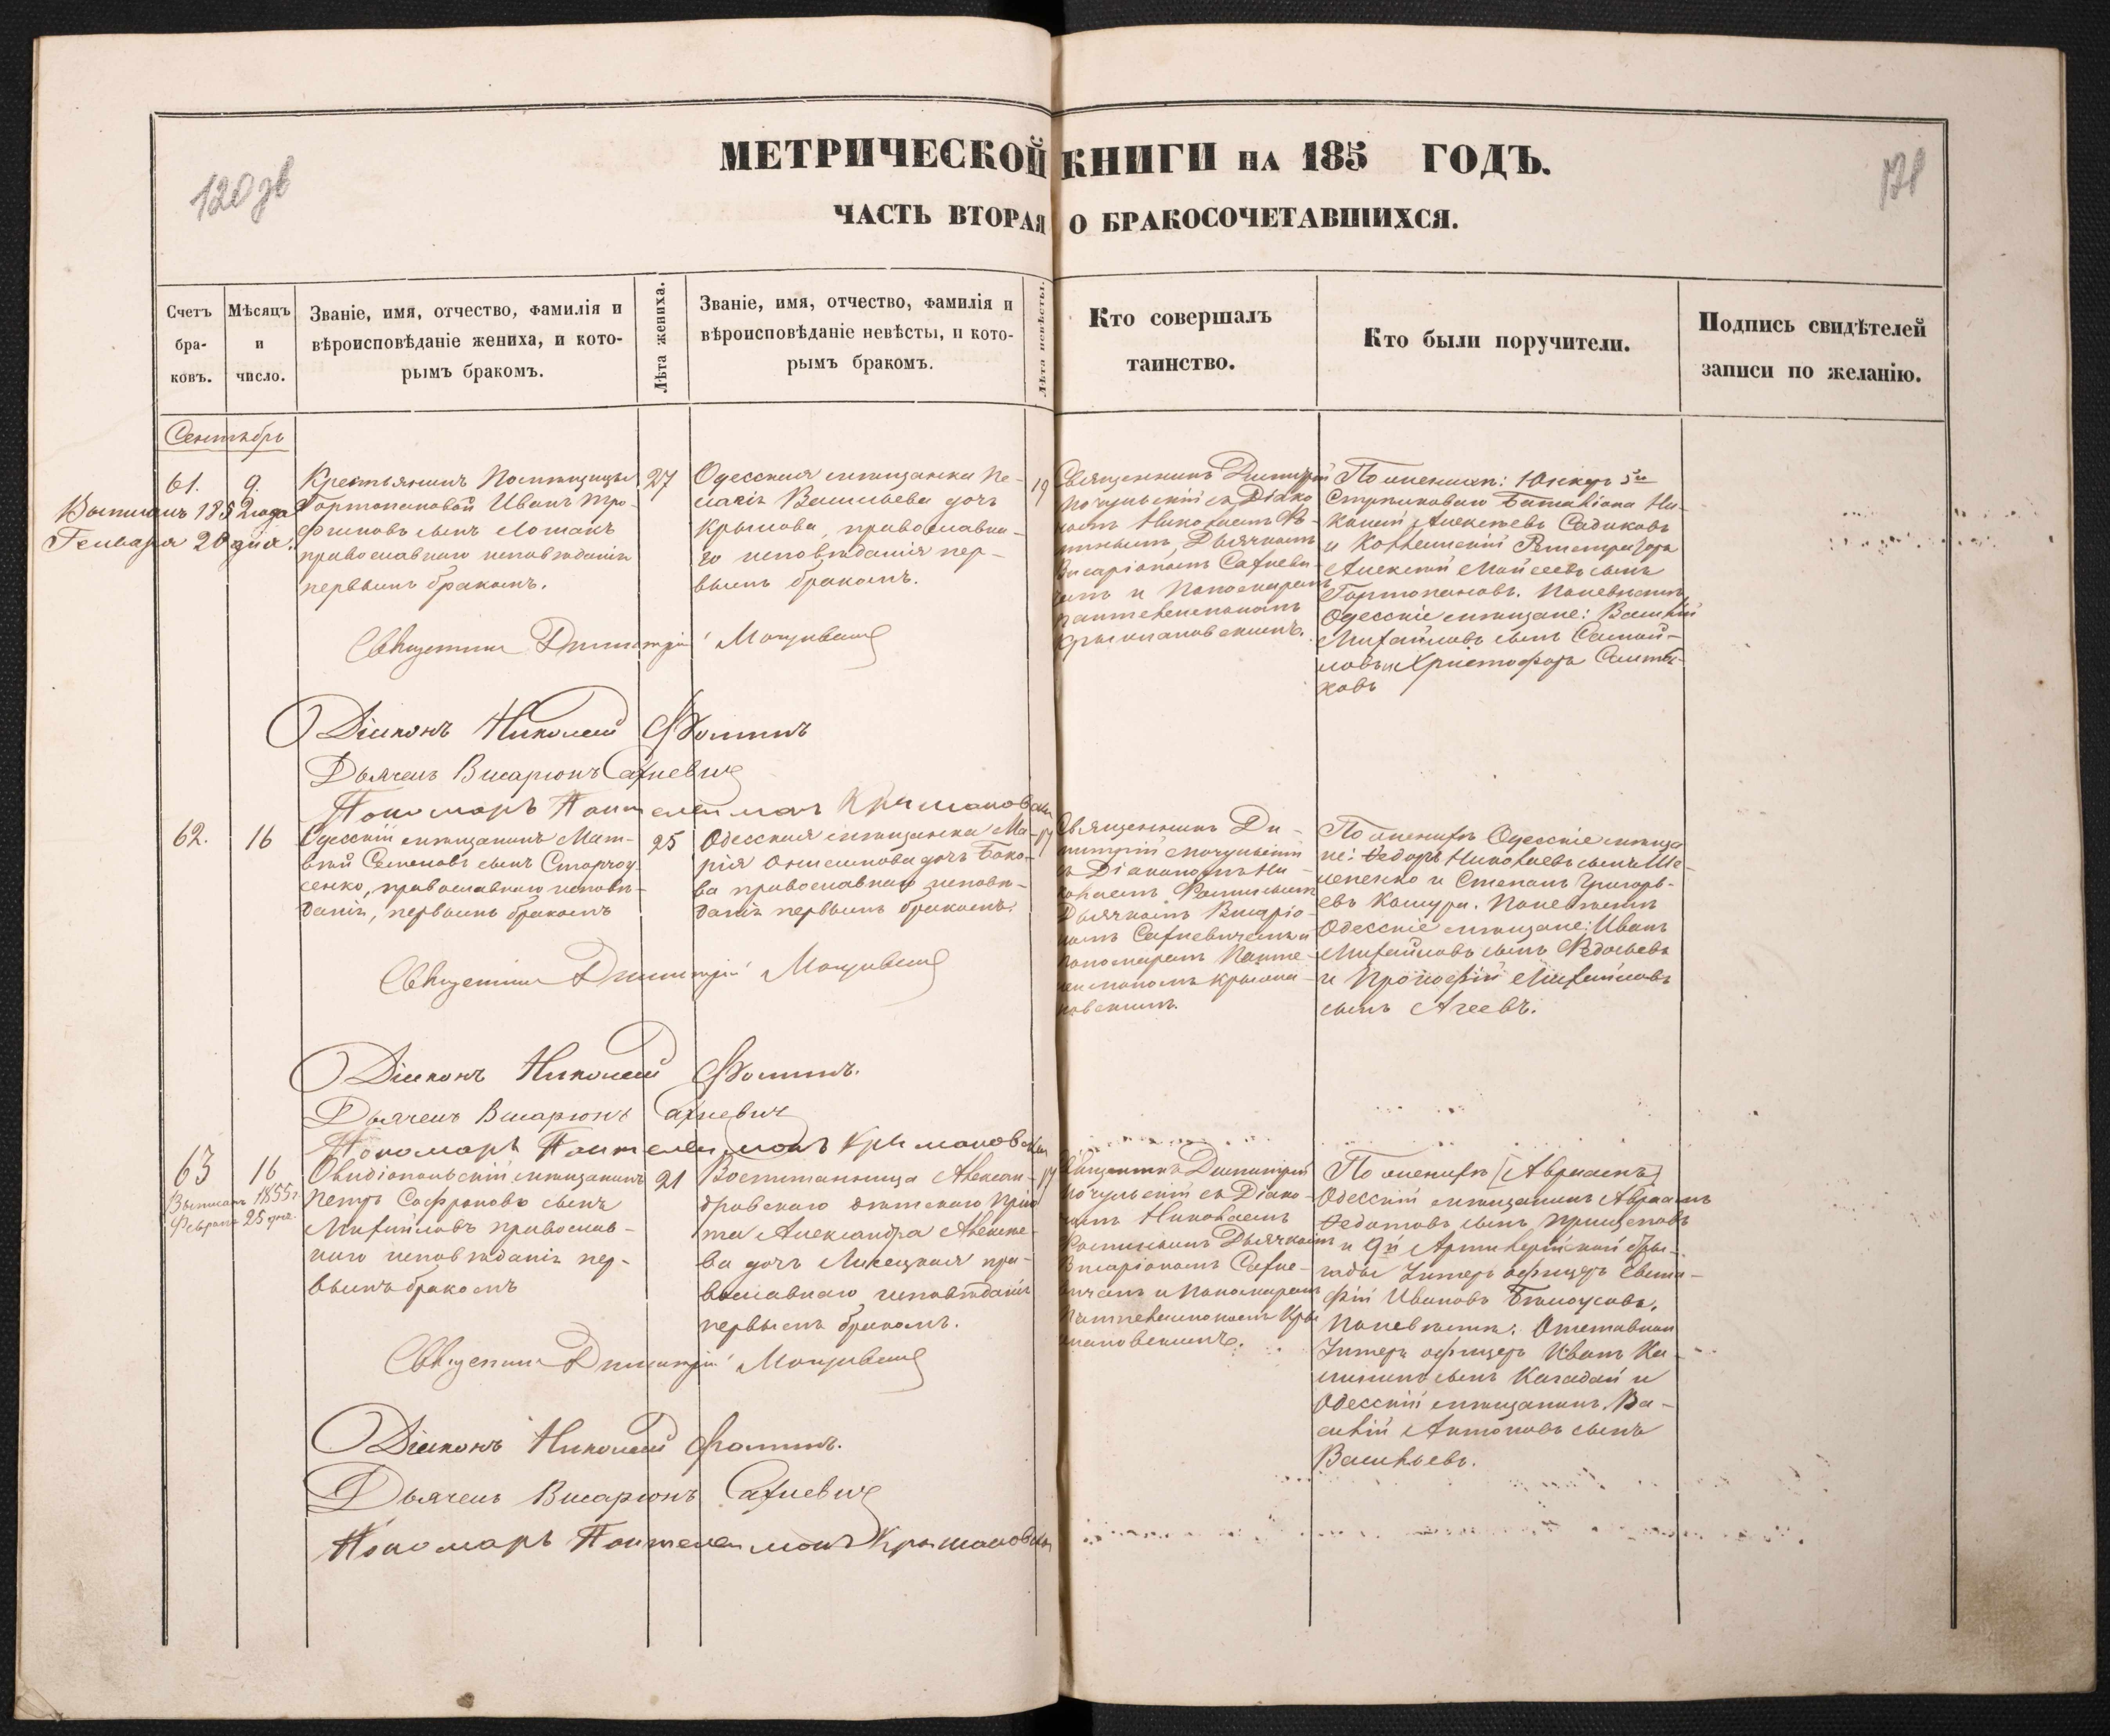 120 зв
121
МЕТРИЧЕСКОЙ КНИГИ НА 185 ГОДЪ.
ЧАСТЬ ВТОРАЯ О БРАКОСОЧЕТАВШИХСЯ.
Счетъ бра-
ковъ.
Мѣсяцъ
и
число.
Званіе, имя, отчество, фамилія и
вѣроисповѣданіе жениха, и кото-
рымъ бракомъ.
Лѣта жениха.
Званіе, имя, отчество, фамилія и
вѣроисповѣданіе невѣсты, и кото-
рымъ бракомъ.
Лѣта невѣсты.
Кто совершалъ
таинство.
Кто были поручители.
Подпись свидѣтелей
записи по желанію.
Сентябрь
61.
9.
Выписанъ 1852 года
Генваря 20 дня.
Крестьянинъ Помѣщицы
Иванъ Тро-
фимовъ сынъ Лошакъ
православнаго исповѣданія
первымъ бракомъ.
27
Одесская мѣщанка Пе-
лагія Васильева дочь
Крылова, православна-
го исповѣданія пер-
вымъ бракомъ.
19
Священникъ Димитрій
съ Діако-
номъ Николаемъ Ѳо-
минымъ, Дьячкомъ
Висаріономъ
и Пономаремъ
Пантелеимономъ
Крыжановскимъ.
По женихѣ: Юнкеръ 5й
Ни-
колай Алексѣевъ Садиковъ
и Коллежскій Регистраторъ
Алексѣй Моисеевъ сынъ
По невѣстѣ
Одесскіе мѣщане: Василій
Михайловъ сынъ Самой-
ловъ и Христофоръ
ковъ
Священникъ Димитрій
Діаконъ Николай Ѳоминъ
Дьячекъ Висаріонъ
Пономарь Пантелеимонъ Крыжановскій
62.
16
Одесскій мѣщанинъ Мат-
вѣй Семеновъ сынъ
сенко, православнаго исповѣ-
данія, первымъ бракомъ
25
Одесская мѣщанка Ма-
рія Онисимова дочь Боко-
ва православнаго исповѣ-
данія первымъ бракомъ.
17
Священникъ Ди-
митрій
съ Діакономъ Ни-
колаемъ Ѳоминымъ
Дьячкомъ Висаріо-
номъ
Пономаремъ Панте-
леимономъ Крыжа-
новскимъ.
По женихѣ Одесскіе мѣща
не: Ѳедоръ Николаевъ сынъ Ше-
и Степанъ Григорь-
евъ По невѣстѣ
Одесскіе мѣщане: Иванъ
Михайловъ сынъ Ѳедосьевъ
и Прокофій Михайловъ
сынъ Агеевъ.
Священникъ Димитрій
Діаконъ Николай Ѳоминъ.
Дьячекъ Висаріонъ
Пономарь Пантелеимонъ Крыжановскій
63
16
Выписанъ 1855 г
Февраля 25 дня.
Овидіопольскій мѣщанинъ
Петръ Сафроновъ сынъ
Михайловъ православ-
наго исповѣданія пер-
вымъ бракомъ
21
Воспитанница Алексан-
дровскаго дѣтскаго Прію
та Александра Алексѣе-
ва дочь пра-
вославнаго исповѣданія
первымъ бракомъ.
17
Священникъ Димитрій
съ Діако-
номъ Николаемъ
Ѳоминымъ Дьячкомъ
Висаріономъ
и Пономаремъ
Пантелеимономъ Кры
жановскимъ.
По женихѣ [Авраамъ]
Одесскій мѣщанинъ Авраамъ
Ѳедотовъ сынъ Прищеповъ
и 9й Артиллерійской бри-
гады Унтеръ офицеръ Евста-
фій Ивановъ Бѣлоусовъ.
По невѣстѣ: Отставной
Унтеръ офицеръ Иванъ Ка-
сынъ и
Одесскій мѣщанинъ Ва-
силій Антоновъ сынъ
Васильевъ.
Священникъ Димитрій
Діаконъ Николай Ѳоминъ.
Дьячекъ Висаріонъ
Пономарь Пантелеимонъ Крыжановскій